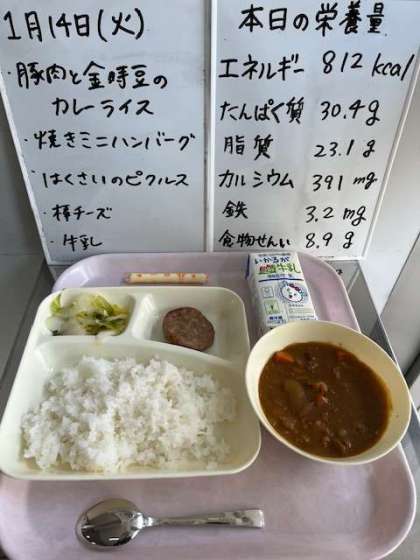 1月14日(火)
・豚肉と金時豆の
カレーライス
・焼きミニハンバーグ
・はくさいのピクルス
・棒チーズ
・牛乳
本日の栄養量
エネルギー 812 kcal
たんぱく質 30.4g
脂質 23.1g
カルシウム 391mg
鉄 3.2mg
食物せんい 8.9g
いかるが
牛乳